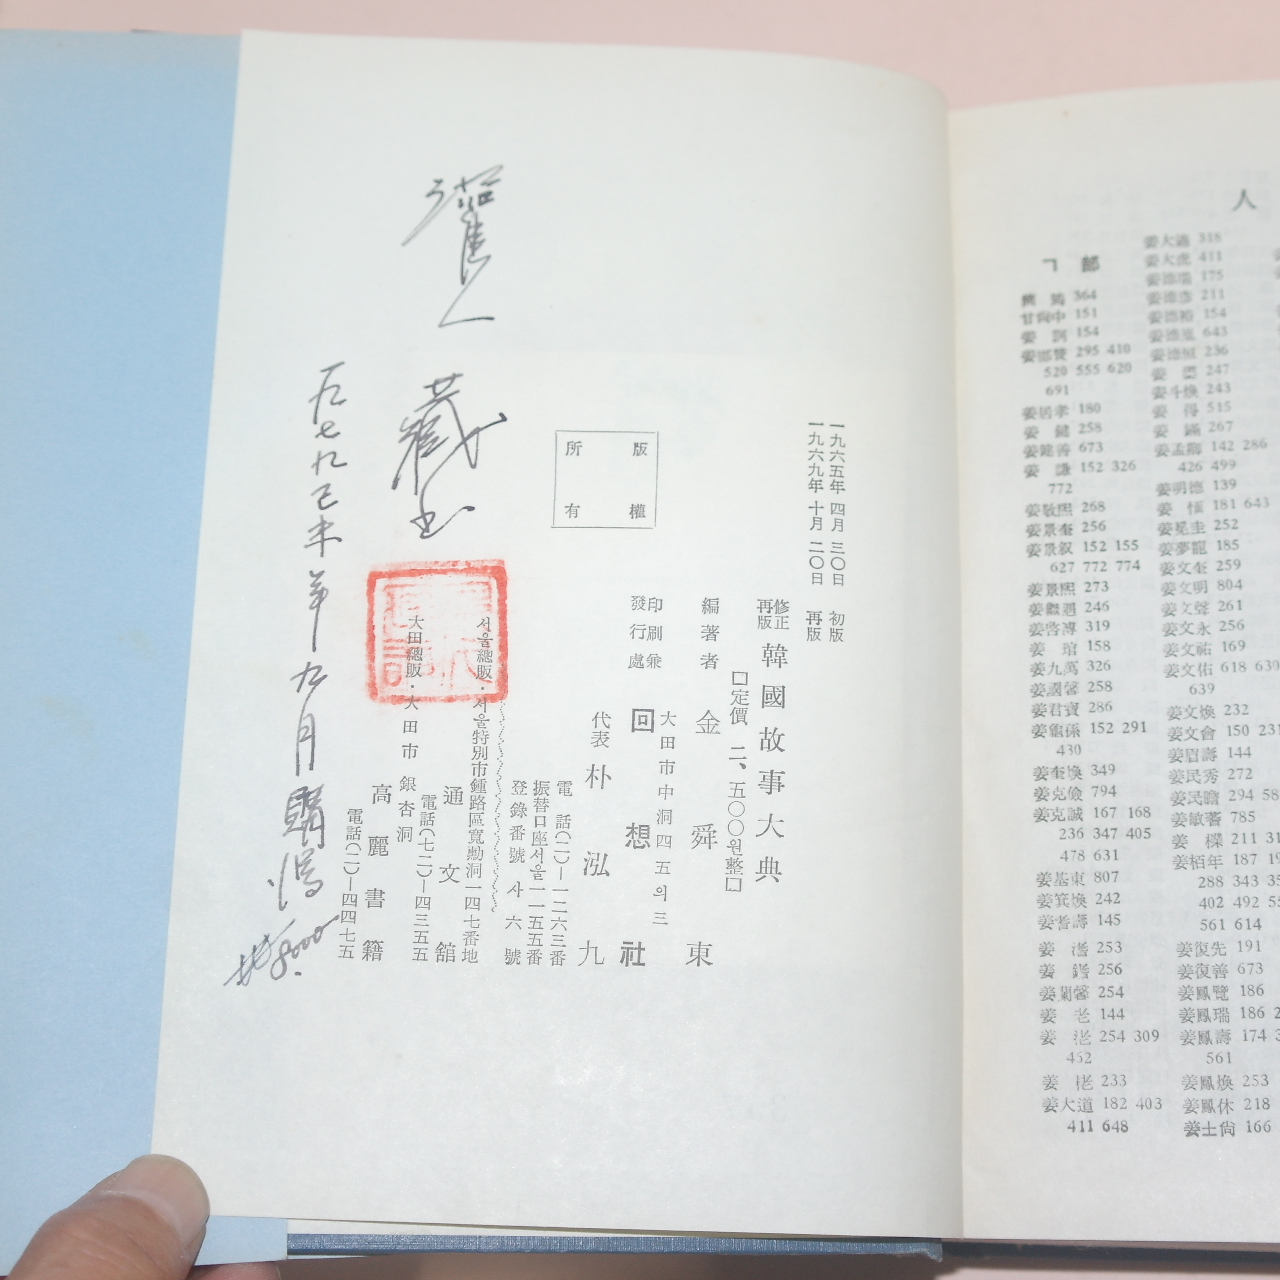 一九六五年 四月 三〇日 初版
一九六九年 十月 二〇日 再版
修正再版 韓國故事大典
□定價 二、五〇〇원整□
編著者 金舜東
印刷兼發行處 回想社
大田市中洞四五의三
代表 朴泓九
電話(二)一二六三番
振替口座서울一一五五番
登錄番號 사 六 號
版權所有
서울總販·서울特別市鍾路區寬勳洞一四七番地
通文舘
電話(七二)—四三五五
大田總販·大田市 銀杏洞
高麗書籍
電話(二)—四四七五
人 藏書
一九七九己未年 九月 購
8000.
人
ㄱ 部
364
甘尙中 151
姜 154
姜邯贊 295 410
520 555 620
691
姜居孝 180
姜 鍵 258
姜健善 673
姜 謙 152 326
772
姜敬熙 268
姜景奎 256
姜景叙 152 155
627 772 774
姜景熙 273
姜繼遇 246
姜啓溥 319
姜 琯 158
姜九萬 326
姜國馨 258
姜君寶 286
姜龜孫 152 291
430
姜奎煥 349
姜克儉 794
姜克誠 167 168
236 347 405
478 631
姜基東 807
姜箕煥 242
姜耆壽 145
姜 253
姜 256
姜蘭馨 254
姜 老 144
姜 254 309
452
姜 栳 233
姜大道 182 403
411 648
姜大遂 316
姜大虎 411
175
姜德彦 211
姜德裕 154
643
236
247
姜斗煥 243
姜 得 515
267
142 286
426 499
姜明德 139
姜 恒 181 643
姜星圭 252
姜夢龍 185
姜文奎 259
姜文明 804
姜文聲 261
姜文永 256
姜文祐 169
姜文佑 618 630
639
姜文煥 232
姜文會 150 231
姜眉壽 144
姜民秀 272
姜民瞻 294
姜敏著 785
姜 211
姜栢年 187
288 343
402 492
561 614
姜復先 191
姜復善 673
姜鳳覽 186
姜鳳瑞 186
姜鳳壽 174
561
姜鳳煥 253
姜鳳休 218
姜士尙 166